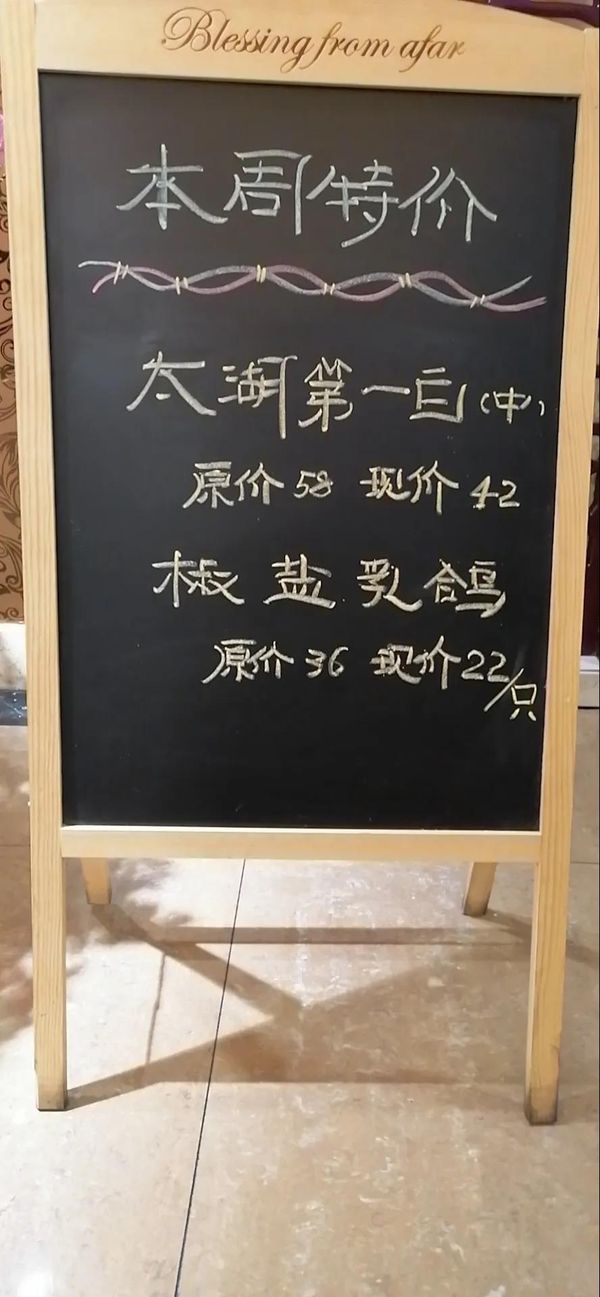 Blessing from afar
本周特价
太湖第一白(中)
原价58 现价42
椒盐乳鸽
原价36 现价22/只